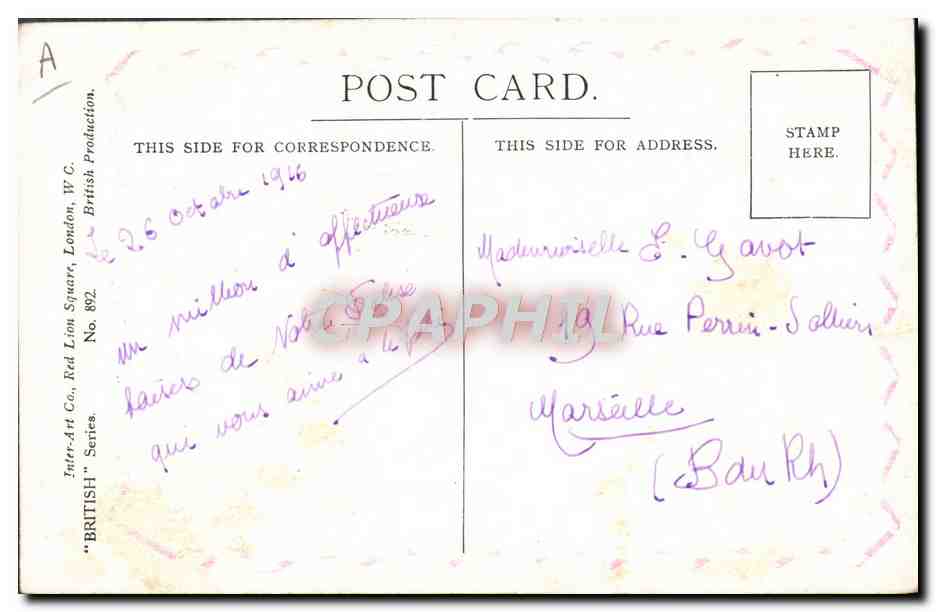 A
POST CARD.
THIS SIDE FOR CORRESPONDENCE.
THIS SIDE FOR ADDRESS.
STAMP
HERE.
Inter-Art Co., Red Lion Square, London, W C.
"BRITISH" Series. No. 892. British Production.
Le 26 Octobre 1916
un million d' affectueuse
baisers de Votre
qui vous aime à la
Mademoiselle E. Gavot
19 Rue Perrin-Solliers
Marseille
(B du Rh)
CPAPHIL